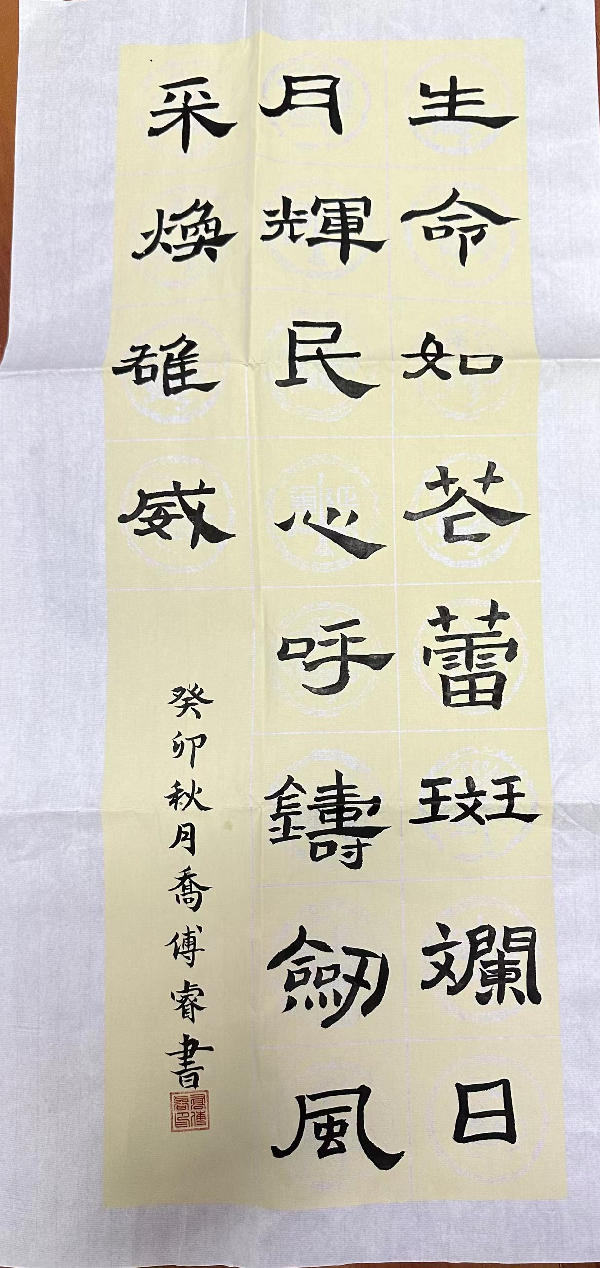 生命如花蕾斑斕日
月輝民心呼鑄劒風
采煥雄威
癸卯秋月喬傅睿書